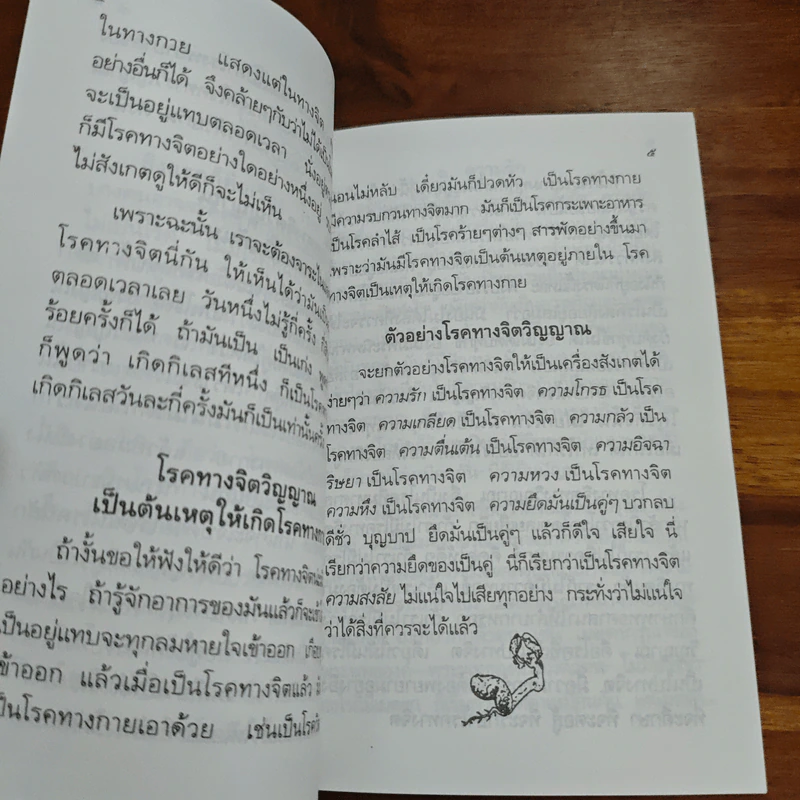 ในทางกวย แสดงแต่ในทางจิต
อย่างอื่นก็ได้ จึงคล้ายๆกับว่าไม่ได้
จะเป็นอยู่แทบตลอดเวลา นั่งอยู่
ก็มีโรคทางจิตอย่างใดอย่างหนึ่งอยู่
ไม่สังเกตดูให้ดีก็จะไม่เห็น
เพราะฉะนั้น เราจะต้องจาระไน
โรคทางจิตนี่กัน ให้เห็นได้ว่ามัน
ตลอดเวลาเลย วันหนึ่งไม่รู้กี่ครั้ง
ร้อยครั้งก็ได้ ถ้ามันเป็น เป็นเก่ง
ก็พูดว่า เกิดกิเลสทีหนึ่ง ก็เป็นโรค
เกิดกิเลสวันละกี่ครั้งมันก็เป็นเท่านั้น
โรคทางจิตวิญญาณ
เป็นต้นเหตุให้เกิดโรคทาง
ถ้างั้นขอให้ฟังให้ดีว่า โรคทางจิต
อย่างไร ถ้ารู้จักอาการของมันแล้วก็จะ
เป็นอยู่แทบจะทุกลมหายใจเข้าออก
เข้าออก แล้วเมื่อเป็นโรคทางจิตแล้ว
เป็นโรคทางกายเอาด้วย เช่นเป็นโรค
๕
นอนไม่หลับ เดี๋ยวมันก็ปวดหัว เป็นโรคทางกาย
มีความรบกวนทางจิตมาก มันก็เป็นโรคกระเพาะอาหาร
เป็นโรคลำไส้ เป็นโรคร้ายๆต่างๆ สารพัดอย่างขึ้นมา
เพราะว่ามันมีโรคทางจิตเป็นต้นเหตุอยู่ภายใน โรค
ทางจิตเป็นเหตุให้เกิดโรคทางกาย
ตัวอย่างโรคทางจิตวิญญาณ
จะยกตัวอย่างโรคทางจิตให้เป็นเครื่องสังเกตได้
ง่ายๆว่า ความรัก เป็นโรคทางจิต ความโกรธ เป็นโรค
ทางจิต ความเกลียด เป็นโรคทางจิต ความกลัว เป็น
โรคทางจิต ความตื่นเต้น เป็นโรคทางจิต ความอิจฉา
ริษยา เป็นโรคทางจิต ความหวง เป็นโรคทางจิต
ความหึง เป็นโรคทางจิต ความยึดมั่นเป็นคู่ๆ บวกลบ
ดีชั่ว บุญบาป ยึดมั่นเป็นคู่ๆ แล้วก็ดีใจ เสียใจ นี่
เรียกว่าความยึดของเป็นคู่ นี่ก็เรียกว่าเป็นโรคทางจิต
ความสงสัย ไม่แน่ใจไปเสียทุกอย่าง กระทั่งว่าไม่แน่ใจ
ว่าได้สิ่งที่ควรจะได้แล้ว